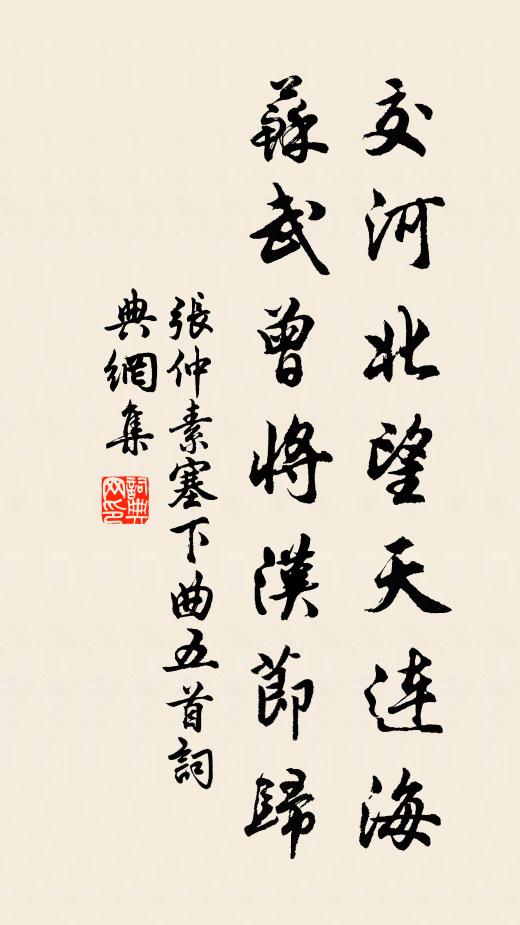 交河北望天連海
蘇武曾將漢節歸
張仲素塞下曲五首詞
典網集
詞典网印